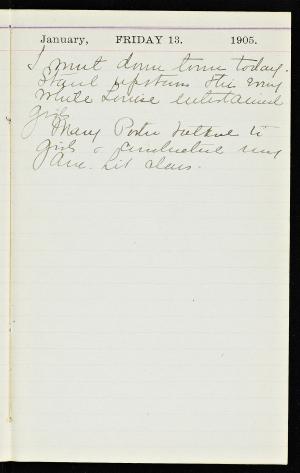 January, FRIDAY 13. 1905.
I went down town today.
Staid upstairs this evng
while Louise entertained
girls
Mary Porter talked to
girls & conducted my
Am. Lit class.